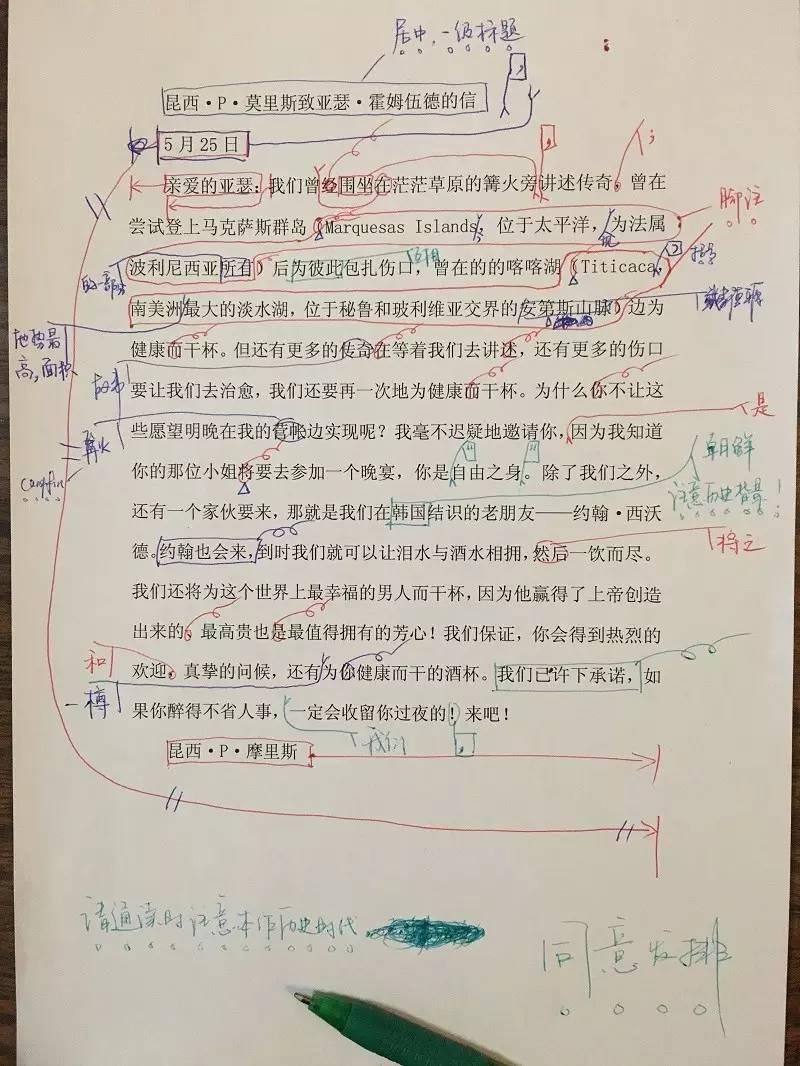 居中,一级标题
昆西·P·莫里斯致亚瑟·霍姆伍德的信
5月25日
亲爱的亚瑟:我们曾经围坐在茫茫草原的篝火旁讲述传奇。曾在
尝试登上马克萨斯群岛(Marquesas Islands,位于太平洋,为法属
脚注
波利尼西亚所有)后为彼此包扎伤口,曾在的的喀喀湖(Titicaca,
的一部分
南美洲最大的淡水湖,位于秘鲁和玻利维亚交界的安第斯山脉)边为
地势最
高,面积
健康而干杯。但还有更多的传奇在等着我们去讲述,还有更多的伤口
故事
要让我们去治愈,我们还要再一次地为健康而干杯。为什么你不让这
是
些愿望明晚在我的营帐边实现呢?我毫不迟疑地邀请你,因为我知道
篝火
朝鲜
你的那位小姐将要去参加一个晚宴,你是自由之身。除了我们之外,
注意历史背景!
还有一个家伙要来,那就是我们在韩国结识的老朋友——约翰·西沃
将之
德。约翰也会来,到时我们就可以让泪水与酒水相拥,然后一饮而尽。
我们还将为这个世界上最幸福的男人而干杯,因为他赢得了上帝创造
出来的、最高贵也是最值得拥有的芳心!我们保证,你会得到热烈的
和
欢迎。真挚的问候,还有为你健康而干的酒杯。我们已许下承诺,如
一樽
果你醉得不省人事,一定会收留你过夜的!来吧!
我们
昆西·P·摩里斯
请通读时注意本作历史时代
同意发排